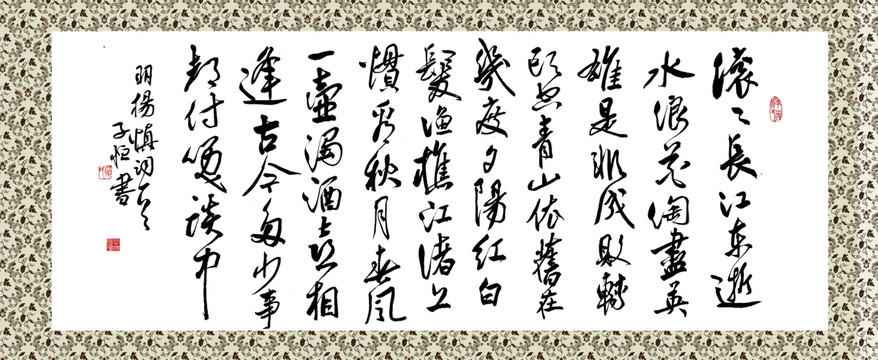 滚〻長江東逝
水浪花淘盡英
雄是非成敗轉
頭空青山依舊在
幾度夕陽紅白
髮漁樵江渚上
慣看秋月春風
一壺濁酒喜相
逢古今多少事
都付笑談中
明楊慎詞
子恒書